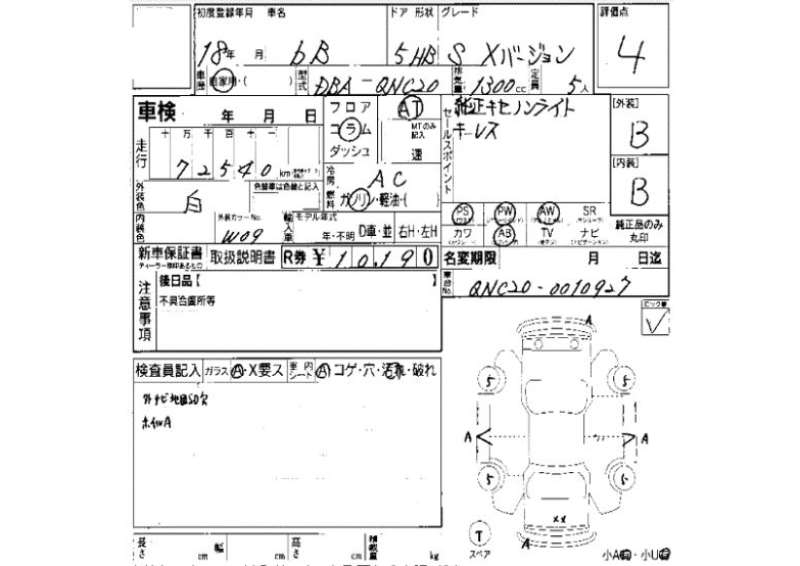 初度登録年月 車名 ドア 形状 グレード 評価点
18年 月 bB 5 HB S Xバージョン 4
車歴 自家用・( ) 型式 DBA-QNC20 排気量 1300cc 定員 5人
車検 年 月 日 フロア AT 純正キセノンライト [外装]
コラム MTのみ記入 キーレス B
ダッシュ 速 セールスポイント
走行 十 万 千 百 十 一
72540 km 冷房 AC [内装]
燃料 ガソリン・軽油・( B
外装色 白 色替車は色替と記入
内装色 外装カラーNo. W09 輸入車 モデル年式 年・不明 D車・並 右H・左H
PS PW AW SR
カワ AB TV ナビ 純正品のみ丸印
新車保証書 取扱説明書 R券 ¥10,190 名変期限 月 日迄
車台No. QNC20-0010927
注意事項 後日品【 】
不具合箇所等
検査員記入 ガラス A・X要ス 車内シート A コゲ・穴・汚れ・破れ
外ナビ地図SD欠
ホイルA
A
5 5
A A
5 5
XX
T
スペア
A
長さ cm 幅 cm 高さ cm 積載量 kg
小A・小U